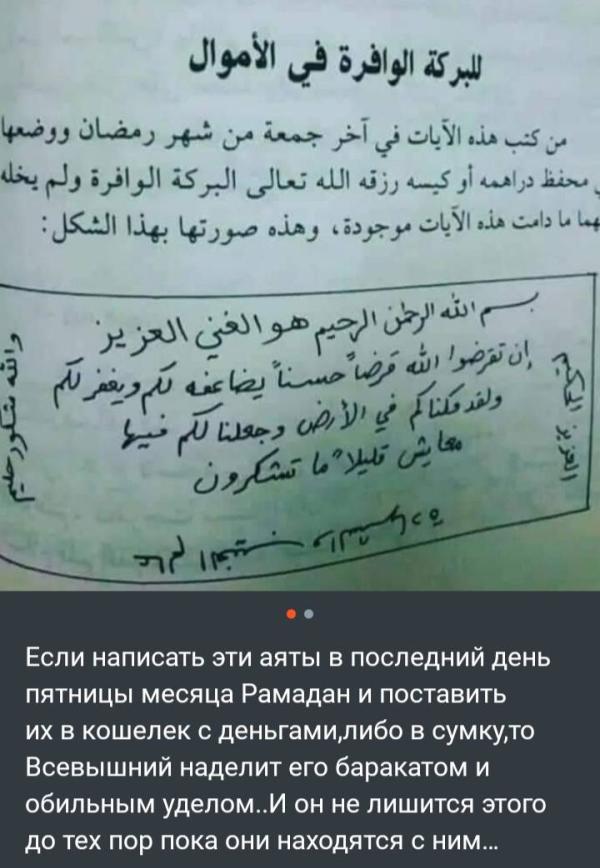 للبركة الوافرة في الأموال
من كتب هذه الآيات في آخر جمعة من شهر رمضان ووضعها
محفظ دراهمه أو كيسه رزقه الله تعالى البركة الوافرة ولم يخله
ما دامت هذه الآيات موجودة، وهذه صورتها بهذا الشكل:
بسم الله الرحمن الرحيم هو الغني العزيز
إن تقرضوا الله قرضاً حسناً يضاعفه لكم ويغفر لكم
ولقد مكناكم في الأرض وجعلنا لكم فيها
معايش قليلاً ما تشكرون
العزيز الحكيم
عالم الغيب والشهادة
والله شكور حليم
Если написать эти аяты в последний день
пятницы месяца Рамадан и поставить
их в кошелек с деньгами,либо в сумку,то
Всевышний наделит его баракатом и
обильным уделом..И он не лишится этого
до тех пор пока они находятся с ним...